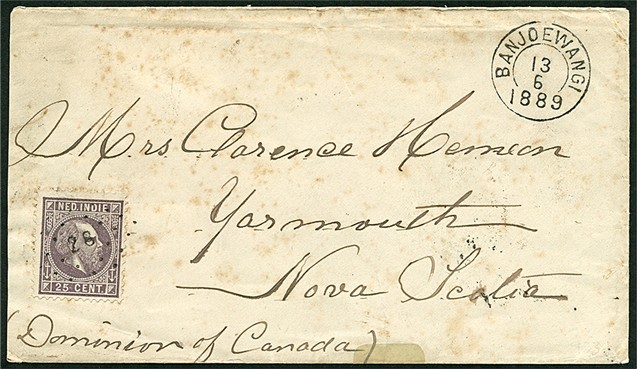 BANJOEWANGI
13
6
1889
Mrs. Clarence Hemeon
Yarmouth
Nova Scotia
(Dominion of Canada)
NED. INDIE
25 CENT.